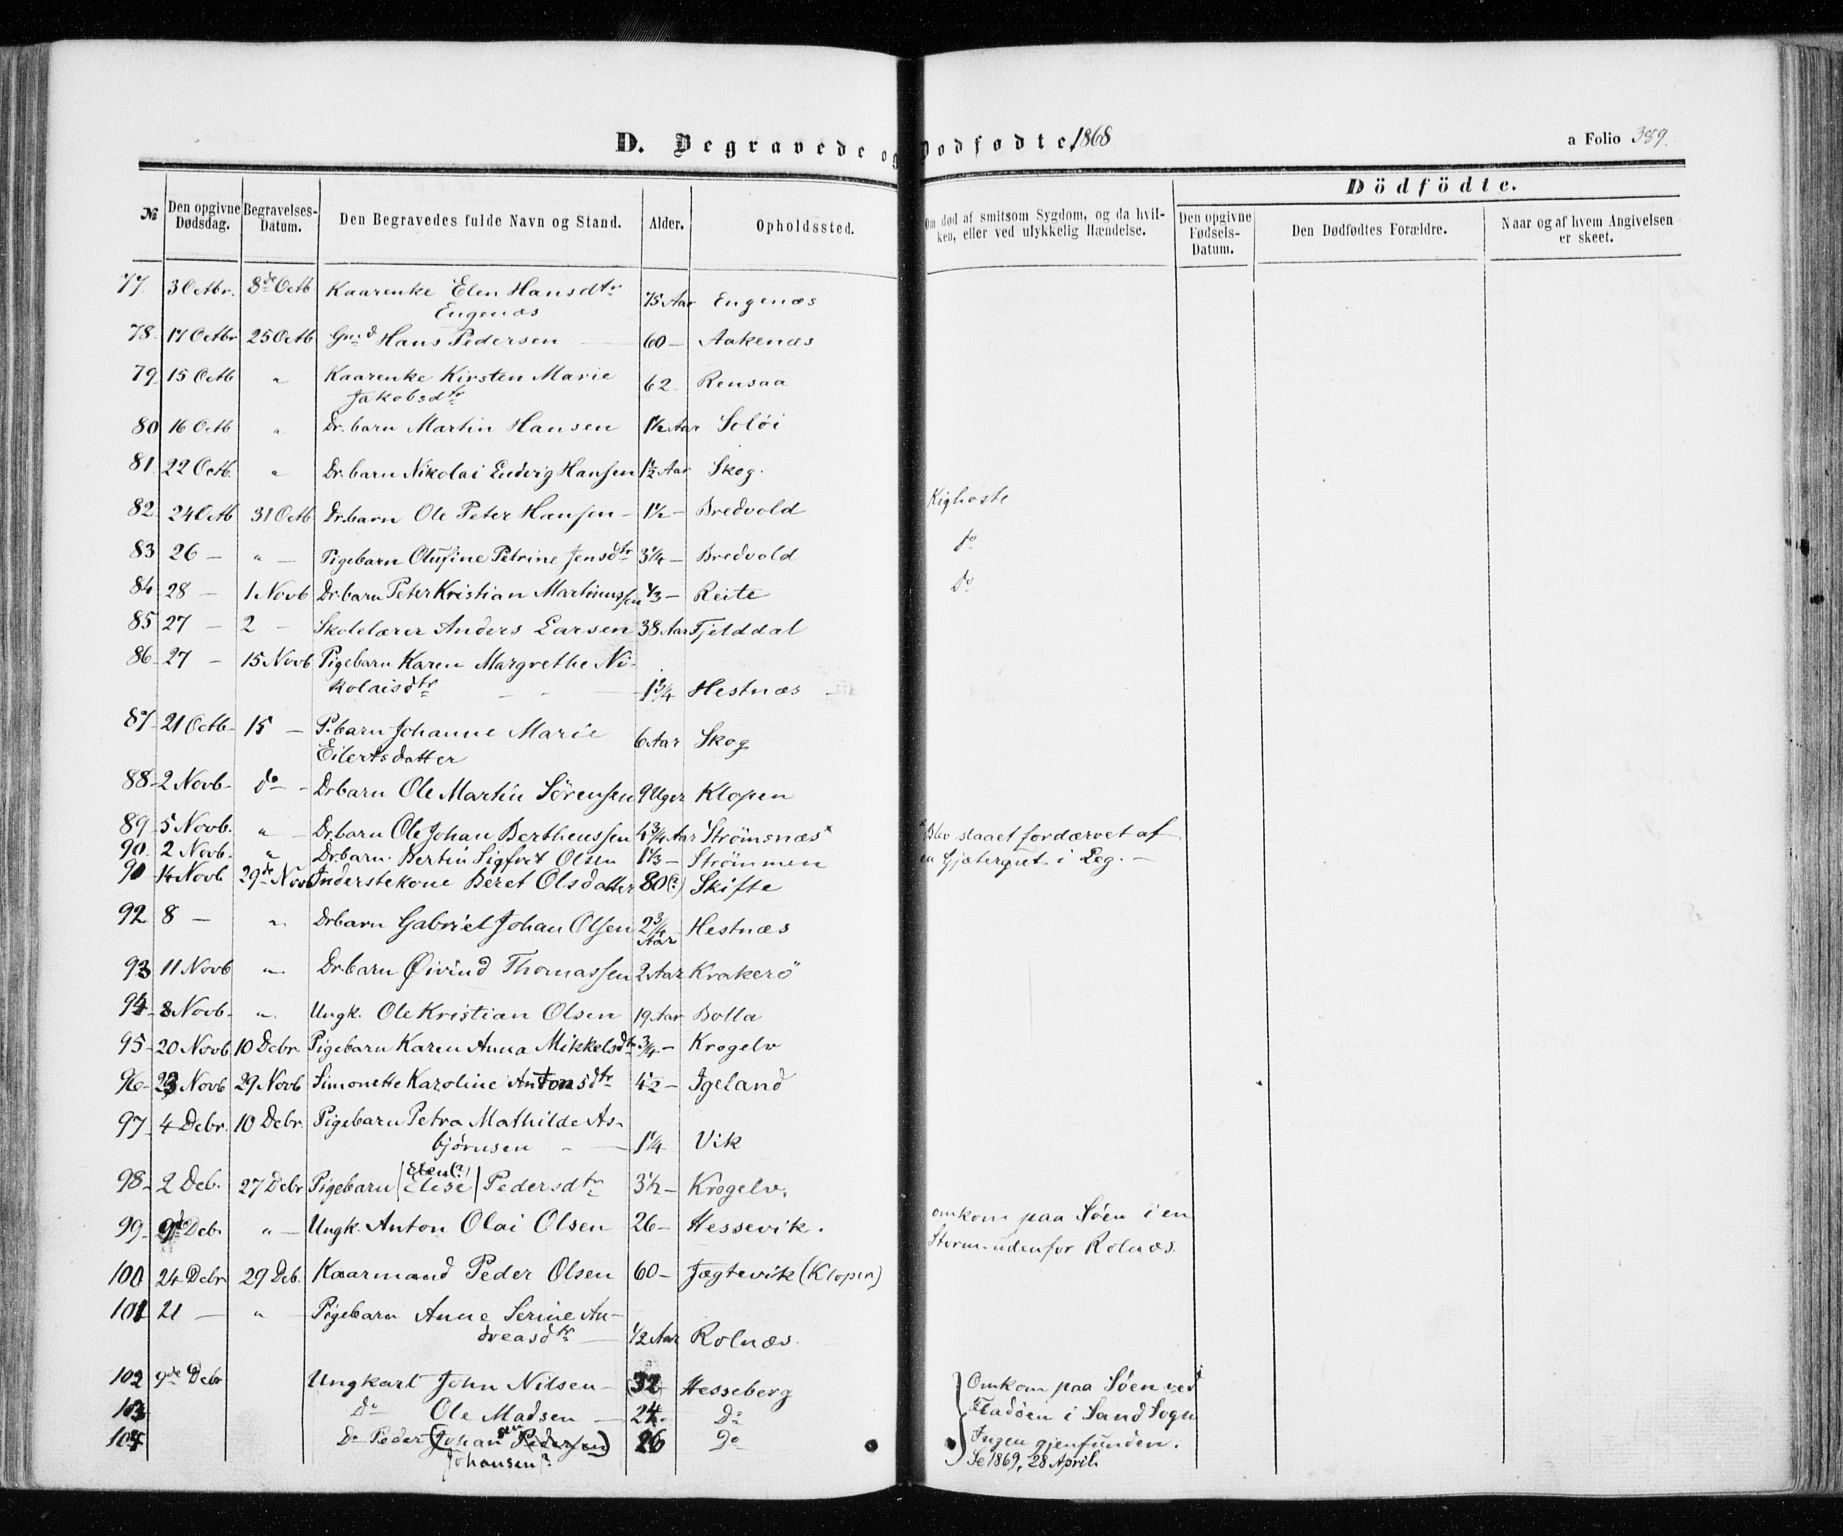 D. Begravede og Dødfødte 1868
a Folio 389.
Dödfödte.
№ Den opgivne Dødsdag. Begravelses-Datum. Den Begravedes fulde Navn og Stand. Alder. Opholdssted. Om død af smitsom Sygdom, og da hvilken, eller ved ulykkelig Hændelse. Den opgivne Fødsels-Datum. Den Dødfødtes Forældre. Naar og af hvem Angivelsen er skeet.
77. 3 Octbr. 8de Octb Kaarenke Elen Hansdtr 75 Aar Engenæs
Engenæs
78. 17 Octbr 25 Octb Grd Hans Pedersen 60 — Aakenæs
79. 15 Octb " Kaarenke Kirsten Marie 62 Rensaa
Jakobsdtr
80 16 Octb " Dr.barn Martin Hansen 1½ Aar Soløi
81. 22 Octb. " Dr.barn Nikolai Ludvig Hansen 1½ Aar Skog.
82 24 Octb 31 Octb Dr.barn Ole Peter Hansen — 1½ — Bredvold Kighoste
83 26 — " — Pigebarn Olufine Petrine Jensdtr 3¼ — Bredvold do
84 28 — 1 Novb Dr.barn Peter Kristian Martinussen ⅓ — Reite Do
85 27 — 2 — Skolelærer Anders Larsen 38 Aar Fjelddal
86 27 — 15 Novb Pigebarn Karen Margrethe Ni-
kolaisdtr 1¾ Hestnæs
87 21 Octb 15 — P.barn Johanne Marie 6 Aar Skog
Eilertsdatter
88 2 Novb. do Dr.barn Ole Martin Sörensen 9 Uger Klopen
89 5 Novb. " Dr.barn Ole Johan Bertheussen 4¾ Aar Strømsnæs× × Blev slaaet fordærvet af
90. 2 Novb. " Dr.barn. Bertin Sigfrit Olsen 1⅓ — Strömmen en Gjætergut i Leg. —
91 14 Novb 29de Novb Inderstekone Beret Olsdatter 80(?) Skifte
92 8 — " Dr.barn Gabriel Johan Olsen 2¾ Aar Hestnæs
93 11 Novb " Dr.barn Øivind Thomassen 2 Aar Krakerö
94 8 Novb. " Ungk. Ole Kristian Olsen 19 Aar Bolla
95 20 Novb 10 Debr Pigebarn Karen Anna Mikkelsdtr ¾ — Krogelv
96 23 Novb 29 Novb Simonette Karoline Antonsdtr 4½ — Igeland
97 4 Debr. 10 Debr. Pigebarn Petra Mathilde As-
bjørnsen 1¼ Vik
98 2 Deb. 27 Debr Pigebarn (Elen(?) Elise) Pedersdtr 3½ — Krogelv.
99 9de Debr. " — Ungk. Anton Olai Olsen 26 — Hessevik. omkom paa Söen i en
Storm udenfor Rolnæs.
100 24 Debr 29 Deb. Kaarmand Peder Olsen 60 — Jægtevik (Klopen)
101 21 — " — Pigebarn Anne Serine An-
dreasdtr — ½ Aar Rolnæs.
102 9de Debr Ungkarl John Nilsen — 32 Hesseberg Omkom paa Söen ved
103 Do Ole Madsen — 24 Do Fladöen i Sand Sogn
104 Do Peder (Johansen Pedersen) 26 Do Ingen gjenfunden.
Johansen? Se 1869, 28 April.